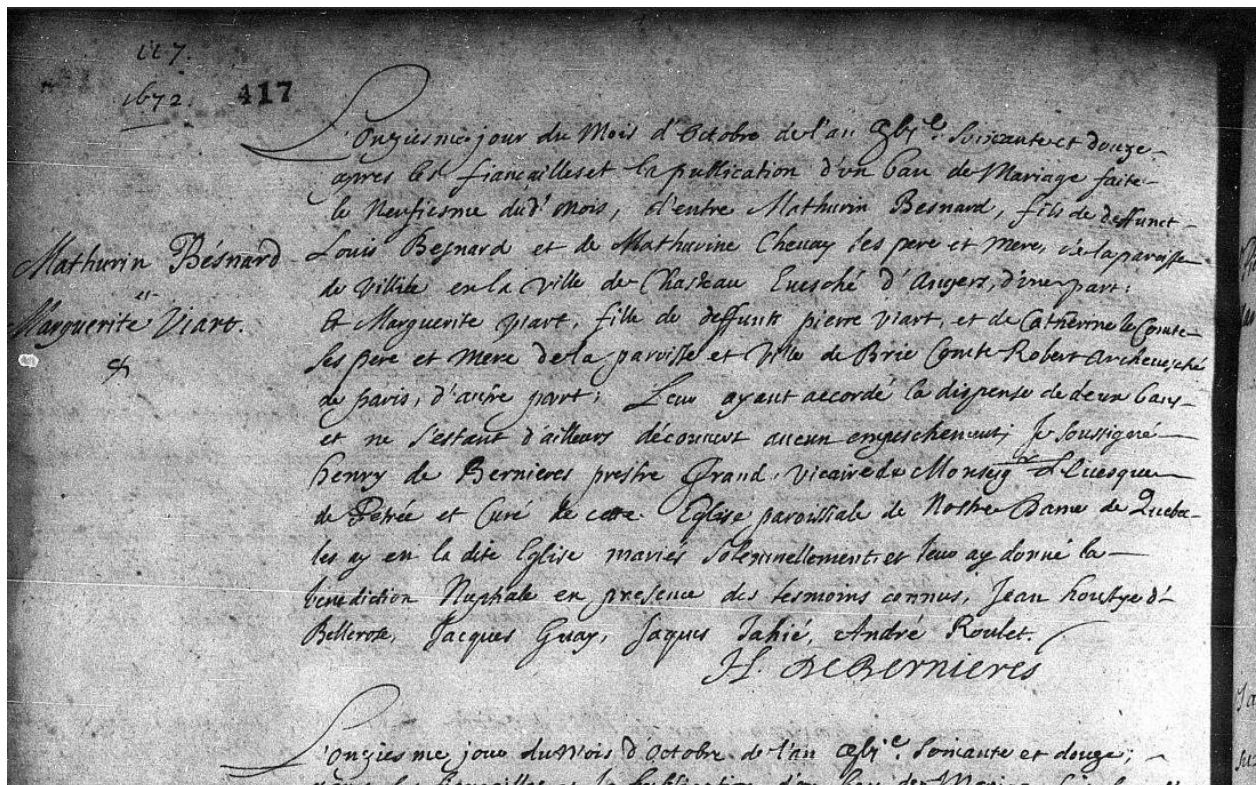 117.
1672. 417
L'onziesme jour du Mois d'Octobre de l'an soixante et douze
apres les fiançailles et la publication d'vn ban de Mariage faite
le Neufiesme dud' mois, d'entre Mathurin Besnard, fils de deffunct
Louis Besnard et de Mathurine Chevay ses pere et mere, de la paroisse
de en la ville de Chasteau Euesché d'Angers, d'vne part;
Et Marguerite viart, fille de deffunts pierre viart, et de Catherine le Comte
ses pere et mere de la paroisse et ville de Brie Comte Robert Archeuesché
de paris, d'autre part; Leur ayant accordé la dispense de deux bans
et ne s'estant d'ailleurs découvert aucun empeschement; Je soussigné
henry de Bernieres prestre Grand Vicaire de Monseigr L'Euesque
de Petrée et Curé de cette Eglise paroissiale de Nostre Dame de Quebec
les ay en la dite Eglise mariés solennellement et leur ay donné la
benediction Nuptiale en presence des tesmoins connus, Jean
Bellerose, Jacques Guay, Jaques Jahié, André Roulet.
H. DeBernieres
Mathurin Besnard
et
Marguerite Viart.
L'onziesme jour du Mois d'Octobre de l'an soixante et douze;